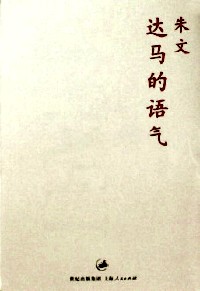 朱文
达马的语气
世纪出版集团 上海人民出版社